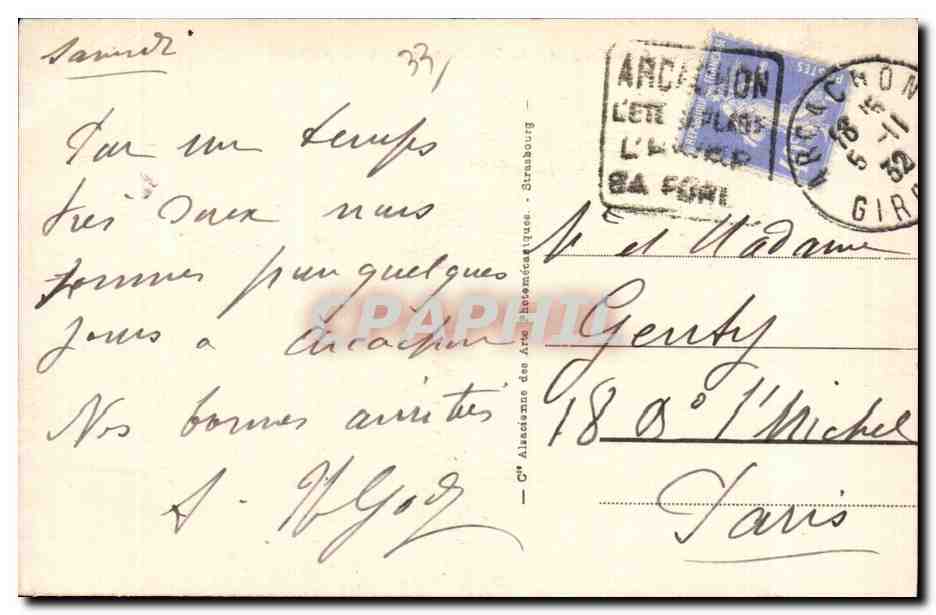 Samedi
33
Par un temps
très doux nous
sommes pour quelques
jours a Arcachon
Nos bonnes amitiés
ARCACHON
L'ETE PLAGE
L'HIVER
SA FORET
POSTES
ARCACHON
18
5-11
32
GIR
Mr et Madame
Genty
18 Bd St Michel
Paris
— Cie Alsacienne des Arts Photomécaniques. - Strasbourg —
CPAPHIL